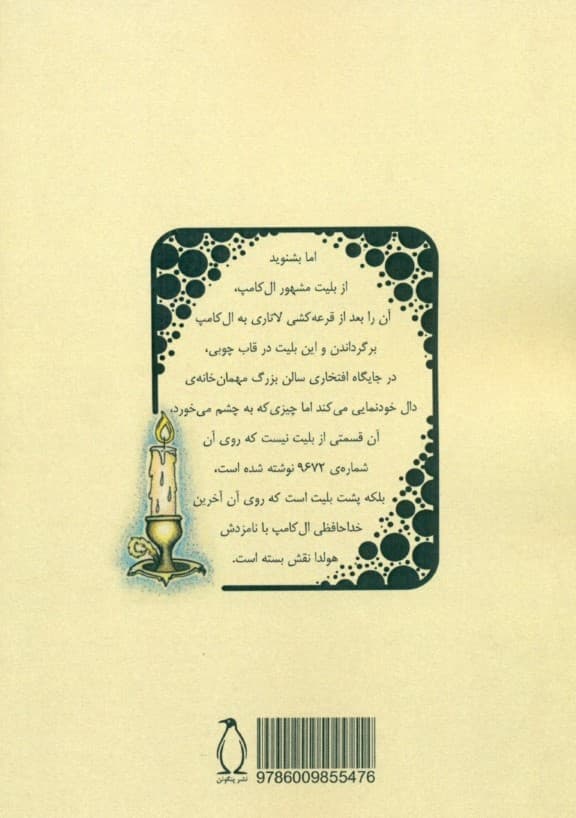 اما بشنوید
از بلیت مشهور ال‌کامپ،
آن را بعد از قرعه‌کشی لاتاری به ال‌کامپ
برگرداندن و این بلیت در قاب چوبی،
در جایگاه افتخاری سالن بزرگ مهمان‌خانه‌ی
دال خودنمایی می‌کند اما چیزی‌که به چشم می‌خورد،
آن قسمتی از بلیت نیست که روی آن
شماره‌ی ۹۶۷۲ نوشته شده است،
بلکه پشت بلیت است که روی آن آخرین
خداحافظی ال‌کامپ با نامزدش
هولدا نقش بسته است.
نشر پنگوئن
9786009855476